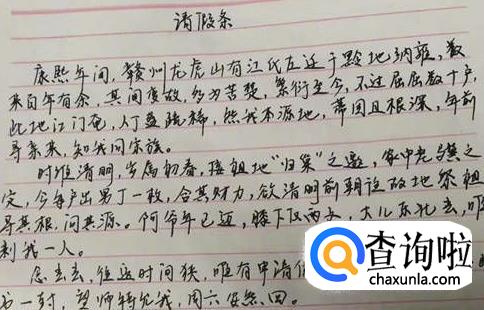 请假条
康熙年间，赣州龙虎山有江氏左迁于黔地纳雍，数
来自年有余，其间变故，多为苦楚，繁衍至今，不过屈屈数十户，
此地江门奄，人丁益疏稀，然我本源地，蒂固且根深，年前
寻亲来，知我同宗族。
时维清明，岁属初春，接祖地“归巢”之邀，家中老
定，今每户出男丁一枚，合其财力，欲清明前朝这故地祭祖
寻其根，问其源。阿爷年已迈，膝下仅两子，大儿东北去，唯
剩我一人。
念去去，往返时间狭，唯有申请
书一封，望师特允我，周六安然回。
查询啦
chaxunla.com